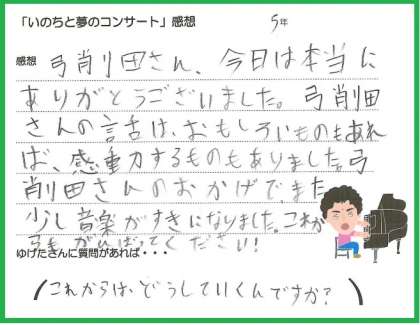 「いのちと夢のコンサート」感想 5年
感想 弓削田さん、今日は本当に
ありがとうございました。弓削田
さんの話は、おもしろいものもあれ
ば、感動するものもありました。弓
削田さんのおかげで、また
少し音楽がすきになりました。これか
らもがんばってください!
ゆげたさんに質問があれば・・・
(これからは、どうしていくんですか?)